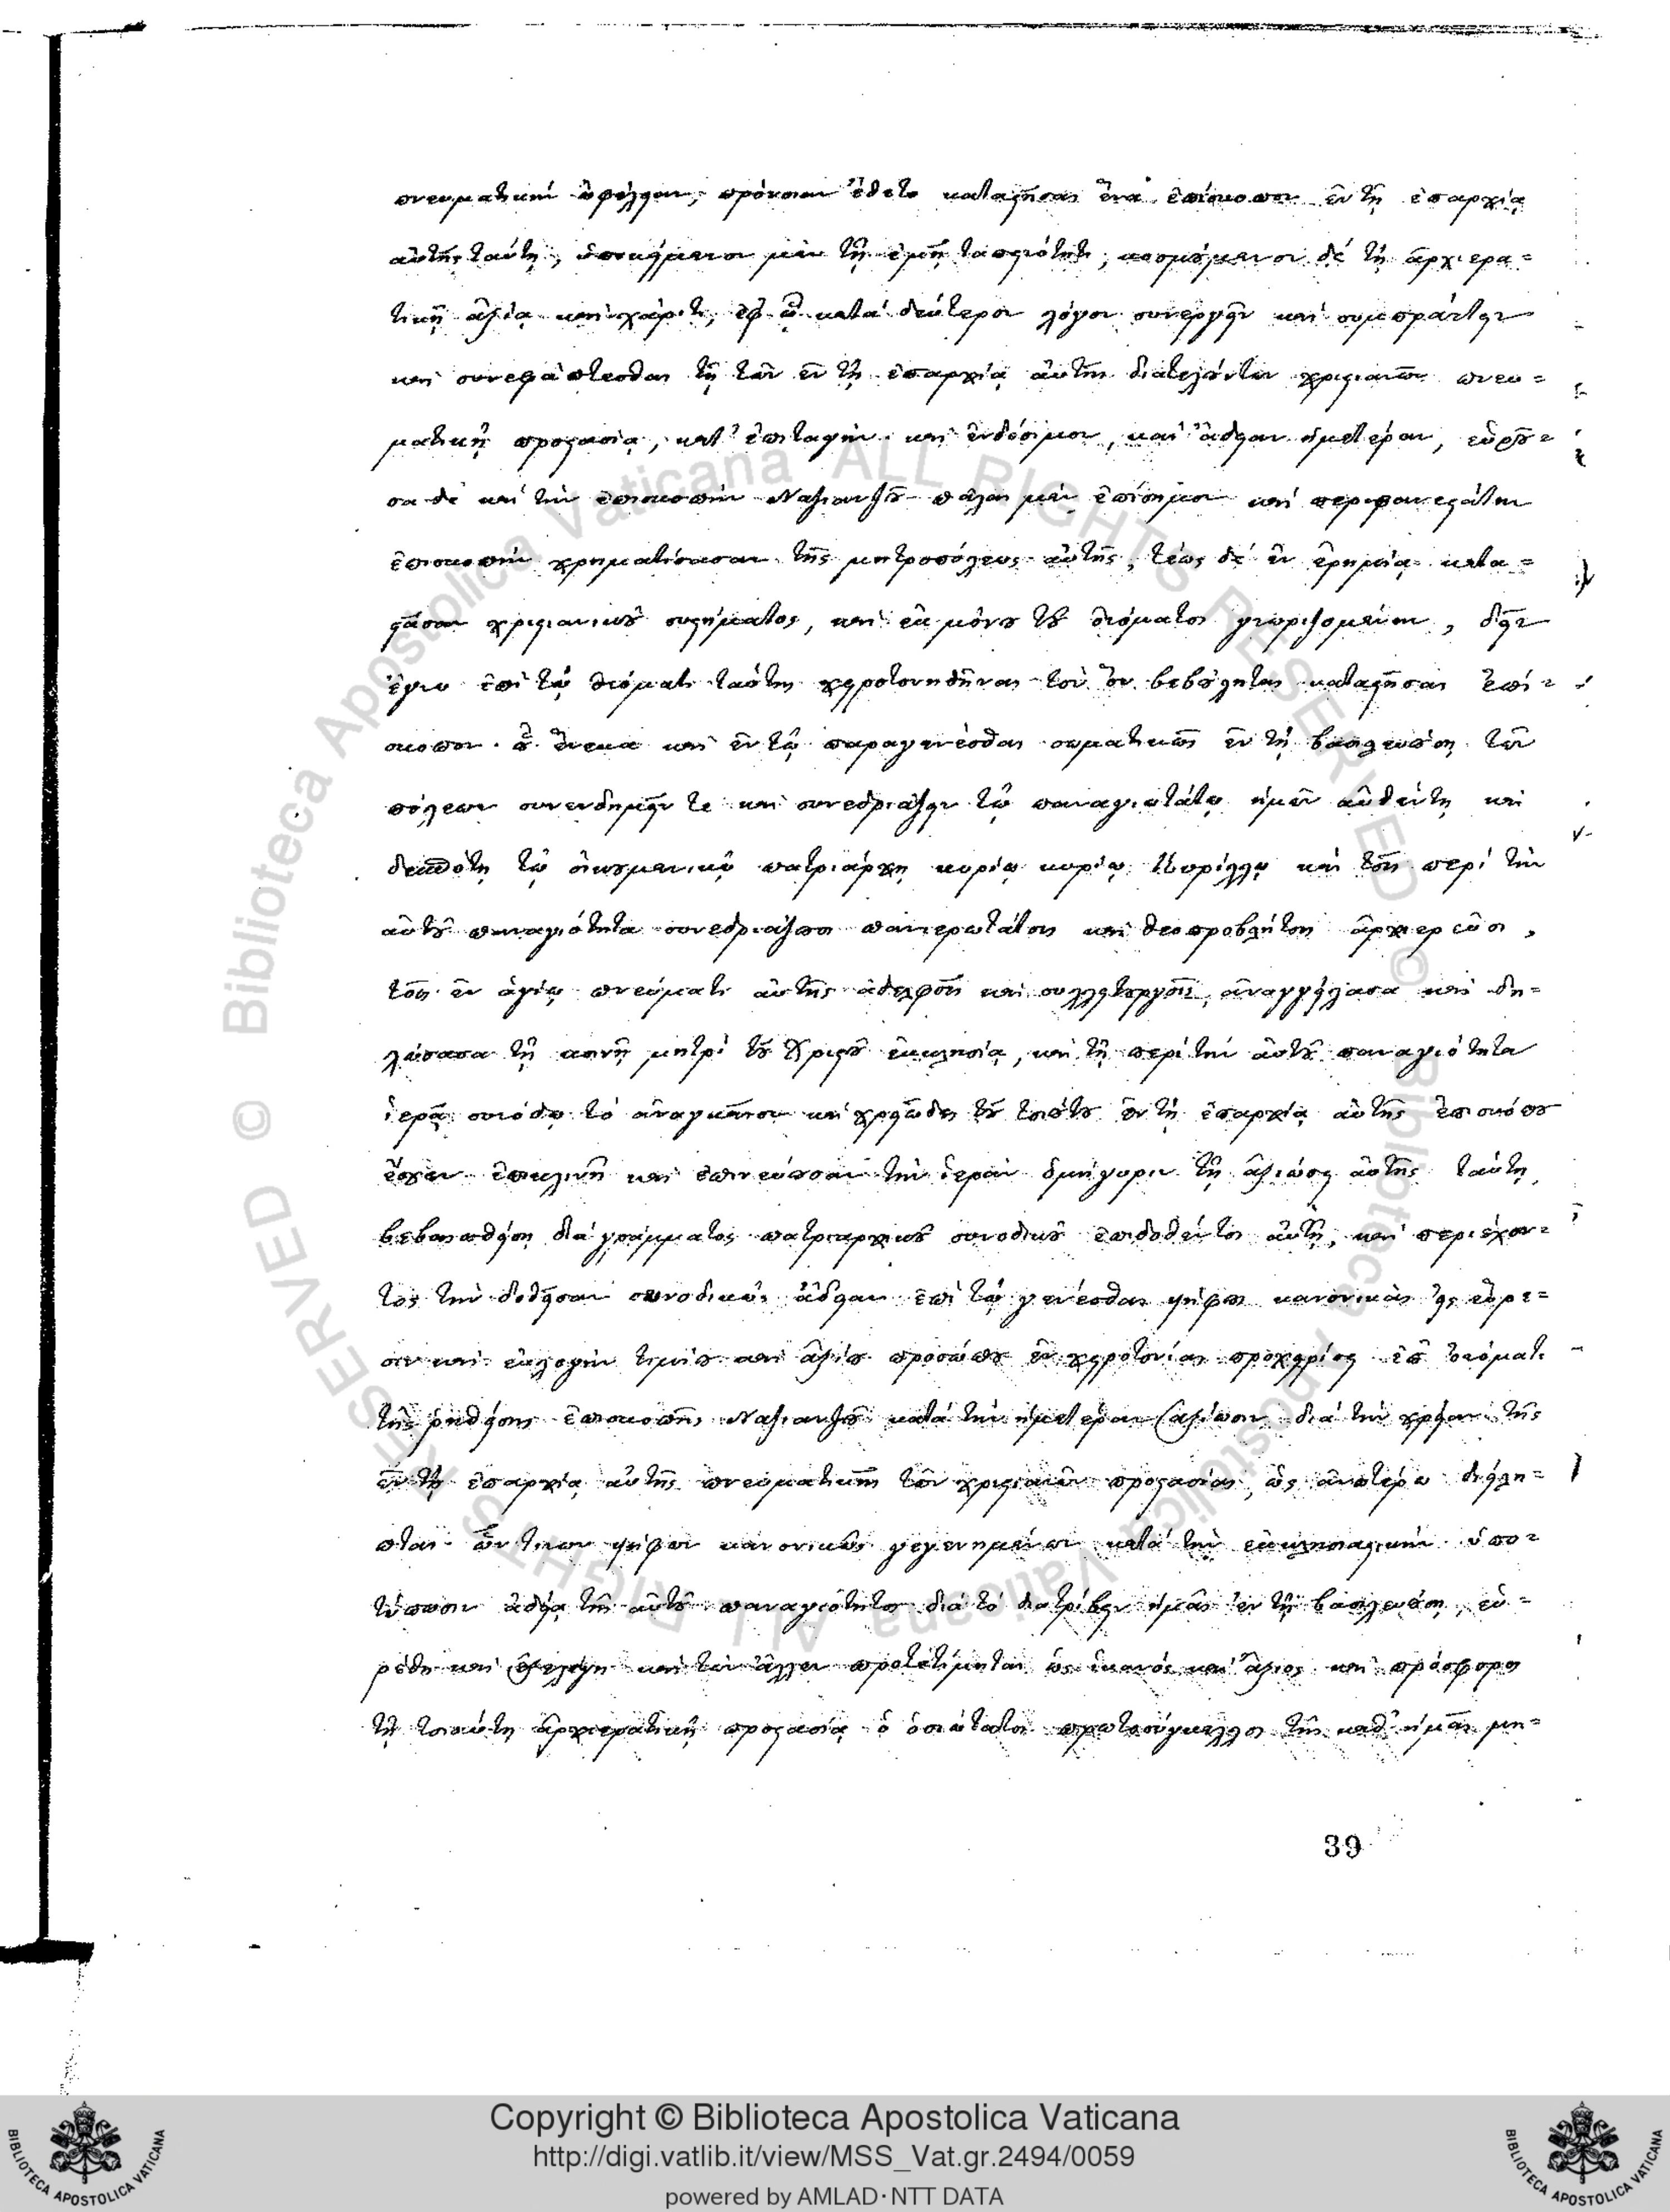 πνευματικὴν ὠφέλειαν, πρόνοιαν ἔθετο καταστῆσαι ἕνα ἐπίσκοπον ἐν τῇ ἐπαρχίᾳ
αὐτῆς ταύτῃ, ὑποκείμενον μὲν τῇ ἐμῇ ταπεινότητι, κοσμούμενον δὲ τῇ ἀρχιερα=
τικῇ ἀξίᾳ καὶ χάριτι, ἐφ' ᾧ κατὰ δεύτερον λόγον συνεργεῖν καὶ συμπράττειν
καὶ συνεφάπτεσθαι τῇ τῶν ἐν τῇ ἐπαρχίᾳ αὐτῆς διατελούντων χριστιανῶν πνευ=
ματικῇ προστασίᾳ, κατ' ἐπιταγὴν καὶ ἐνδόσιμον, καὶ ἄδειαν ἡμετέραν, εὑροῦ=
σα δὲ καὶ τὴν ἐπισκοπὴν Ναζιανζοῦ πάλαι μὲν ἐπίσημον καὶ περιφανεστάτην
ἐπισκοπὴν χρηματίσασαν τῆς μητροπόλεως αὐτῆς, τέως δὲ ἐν ἐρημίᾳ κατα=
στᾶσαν χριστιανικοῦ συστήματος, καὶ ἐκ μόνου τοῦ ὀνόματος γνωριζομένην, δεῖν
ἔγνω ἐπὶ τῷ ὀνόματι ταύτης χειροτονηθῆναι τὸν ὃν βεβούληται καταστῆσαι ἐπί=
σκοπον. οὗ ἕνεκα καὶ ἐν τῷ παραγενέσθαι σωματικῶς ἐν τῇ βασιλευούσῃ τῶν
πόλεων συνενδημεῖν τε καὶ συνεδριάζειν τῷ παναγιωτάτῳ ἡμῶν αὐθέντῃ καὶ
δεσπότῃ τῷ οἰκουμενικῷ πατριάρχῃ κυρίῳ κυρίῳ Κυρίλλῳ καὶ τοῖς περὶ τὴν
αὐτοῦ παναγιότητα συνεδριάζουσι πανιερωτάτοις καὶ θεοπροβλήτοις ἀρχιερεῦσι,
τοῖς ἐν ἁγίῳ πνεύματι αὐτῆς ἀδελφοῖς καὶ συλλειτουργοῖς, ἀναγγείλασα καὶ δη=
λώσασα τῇ κοινῇ μητρὶ τοῦ Χριστοῦ ἐκκλησίᾳ, καὶ τῇ περὶ τὴν αὐτοῦ παναγιότητα
ἱερᾷ συνόδῳ τὸ ἀναγκαῖον καὶ χρειῶδες τοῦ τοιούτου ἐν τῇ ἐπαρχίᾳ αὐτῆς ἐπισκόπου
ἔσχεν ἐπικλινῆ καὶ ἐπινεύουσαν τὴν ἱερὰν ὁμήγυριν τῇ ἀξιώσει αὐτῆς ταύτῃ
βεβαιωθείσῃ διὰ γράμματος πατριαρχικοῦ συνοδικοῦ ἐπιδοθέντος αὐτῇ, καὶ περιέχον=
τος τὴν δοθεῖσαν συνοδικῶς ἄδειαν ἐπὶ τῷ γενέσθαι ψήφους κανονικὰς εἰς εὕρε=
σιν καὶ ἐκλογὴν τιμίου καὶ ἀξίου προσώπου ἐκ χειροτονίας προχειρίσει ἐπ' ὀνόματι
τῆς ῥηθείσης ἐπισκοπῆς Ναζιανζοῦ κατὰ τὴν ἡμετέραν ἀξίωσιν διὰ τὴν χρείαν τῆς
ἐν τῇ ἐπαρχίᾳ αὐτῆς πνευματικῆς τῶν χριστιανῶν προστασίας, ὡς ἀνωτέρω διείλη=
πται. ὧν τινων ψήφων κανονικῶς γεγενημένων κατὰ τὴν ἐκκλησιαστικὴν ὑπο=
τύπωσιν ἀδείᾳ τῆς αὐτοῦ παναγιότητος διὰ τὸ διατρίβειν ἡμᾶς ἐν τῇ βασιλευούσῃ, εὑ=
ρέθη καὶ ἐξελέγη καὶ τῶν ἄλλων προτετίμηται ὡς ἱκανὸς καὶ ἄξιος καὶ πρόσφορος
τῇ τοιαύτῃ ἀρχιερατικῇ προστασίᾳ ὁ ὁσιώτατος πρωτοσύγκελλος τῆς καθ' ἡμᾶς μη=
39
© Biblioteca Apostolica Vaticana ALL RIGHTS RESERVED
Copyright © Biblioteca Apostolica Vaticana
http://digi.vatlib.it/view/MSS_Vat.gr.2494/0059
powered by AMLAD·NTT DATA
BIBLIOTECA APOSTOLICA VATICANA
BIBLIOTECA APOSTOLICA VATICANA